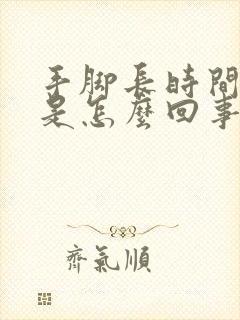 手脚長時間
是怎麼回事
齊氣順